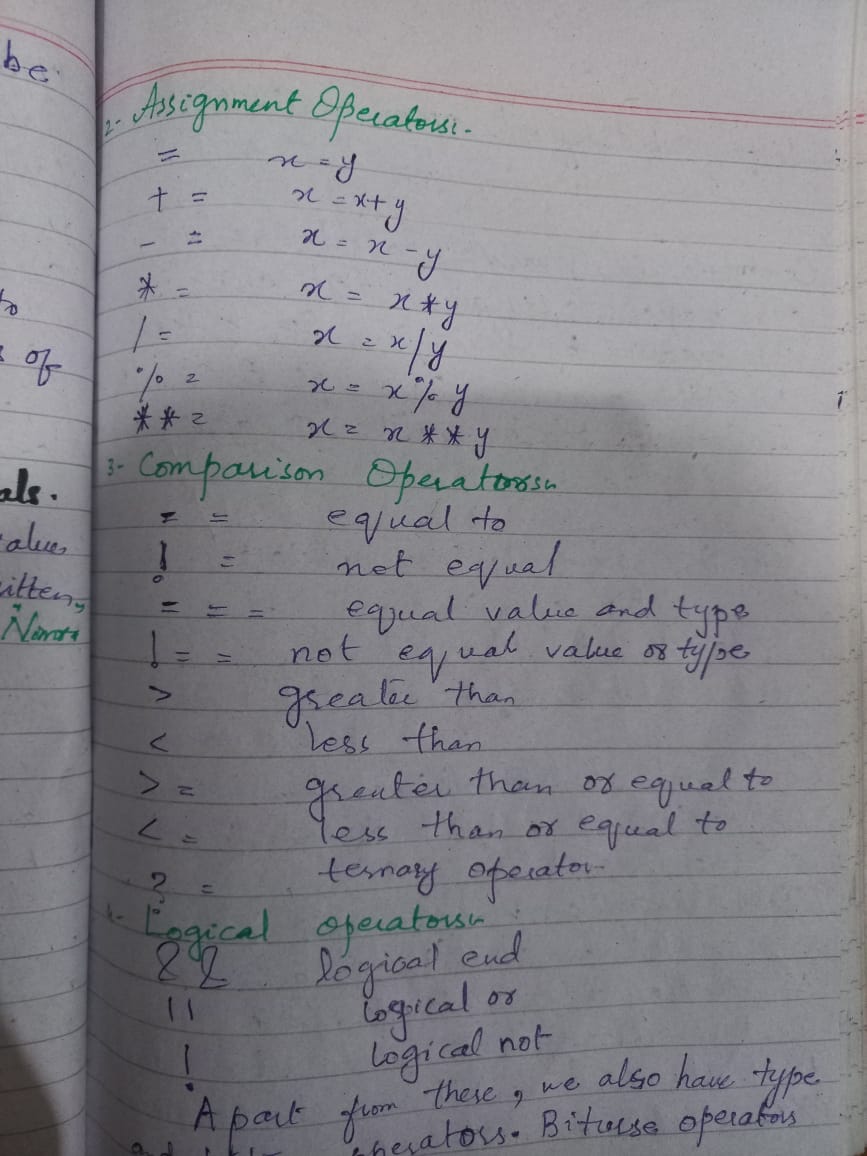 be
2- Assignment Operators:-
= x = y
+ = x = x + y
- = x = x - y
* = x = x * y
/ = x = x / y
of
% = x = x % y
* * = x = x * * y
3- Comparison Operators:-
als.
= = equal to
value
! = not equal
itten,
= = = equal value and type
! = = not equal value or type
> greater than
< less than
> = greater than or equal to
< = less than or equal to
? = ternary operator
4- Logical operators:-
&& logical end
|| logical or
! logical not
Apart from these, we also have type
operators. Bitwise operators